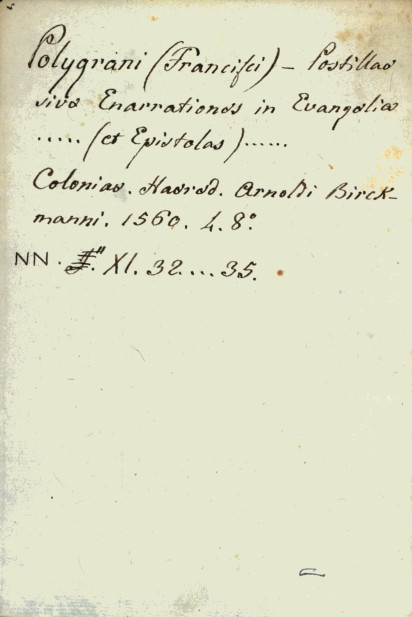 Polygrani (Francisci) – Postillae
sive Enarrationes in Evangelia
..... (et Epistolas)......
Coloniae. Haered. Arnoldi Birck-
manni. 1560. 4. 8º.
NN. XI. 32....35.